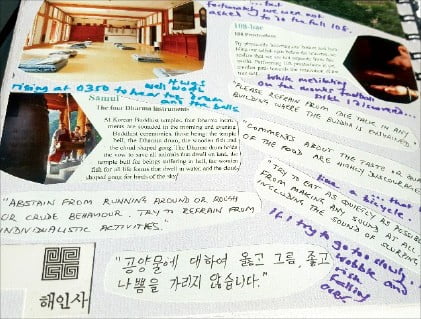 ...but
fortunately we were not
asked to do the full 108.
108-bae
108 Prostrations
It was
well worth
rising at 0350 to hear the drum
and the bells
Samul
The four Dharma Instruments
At Korean Buddhist temples, four Dharma instru-
ments are sounded in the morning and evening
Buddhist ceremonies: those being the temple
bell, the Dharma drum, the wooden fish, and
the cloud-shaped gong. The Dharma drum holds
the vow to save all animals that dwell on land, the
temple bell for beings suffering in hell, the wooden
fish for all life forms that dwell in water, and the cloud-
shaped gong for birds of the sky.
While meditating
I discovered...
PLEASE REFRAIN FROM IDLE TALK IN ANY
BUILDING WHERE THE BUDDHA IS ENSHRINED.
"COMMENTS ABOUT THE TASTE OR
OF THE FOOD ARE HIGHLY DISCOURAGED
"TRY TO EAT AS QUIETLY AS POSSIBLE
FROM MAKING ANY SOUND AT ALL
INCLUDING THE SOUND OF SLURPING
like a
bicycle.
If I try to go too slowly, I
wobble and
risk
falling
over.
"ABSTAIN FROM RUNNING AROUND OR ROUGH
OR CRUDE BEHAVIOUR. TRY TO REFRAIN FROM
INDIVIDUALISTIC ACTIVITIES."
"공양물에 대하여 옳고 그름, 좋고
나쁨을 가리지 않습니다."
해인사